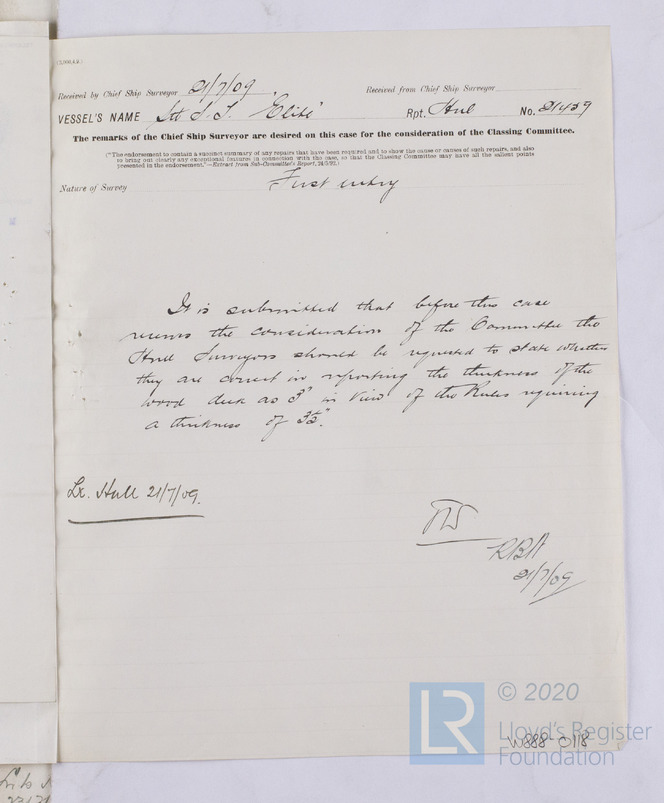 Received by Chief Ship Surveyor 21/7/09. Received from Chief Ship Surveyor
VESSEL'S NAME St S.T. "Elise" Rpt. Hul No. 21459
The remarks of the Chief Ship Surveyor are desired on this case for the consideration of the Classing Committee.
("The endorsement to contain a succinct summary of any repairs that have been required and to show the cause or causes of such repairs, and also
to bring out clearly any exceptional features in connection with the case, so that the Classing Committee may have all the salient points
presented in the endorsement."—Extract from Sub-Committee's Report,
Nature of Survey First entry
It is submitted that before this case
receives the consideration of the Committee the
Hull Surveyors should be requested to state whether
they are correct in reporting the thickness of the
wood deck as 3" in view of the Rules requiring
a thickness of 3½".
Lr. Hull 21/7/09.
RBH
21/7/09
© 2020
LR
Lloyd's Register
Foundation
W888-0118